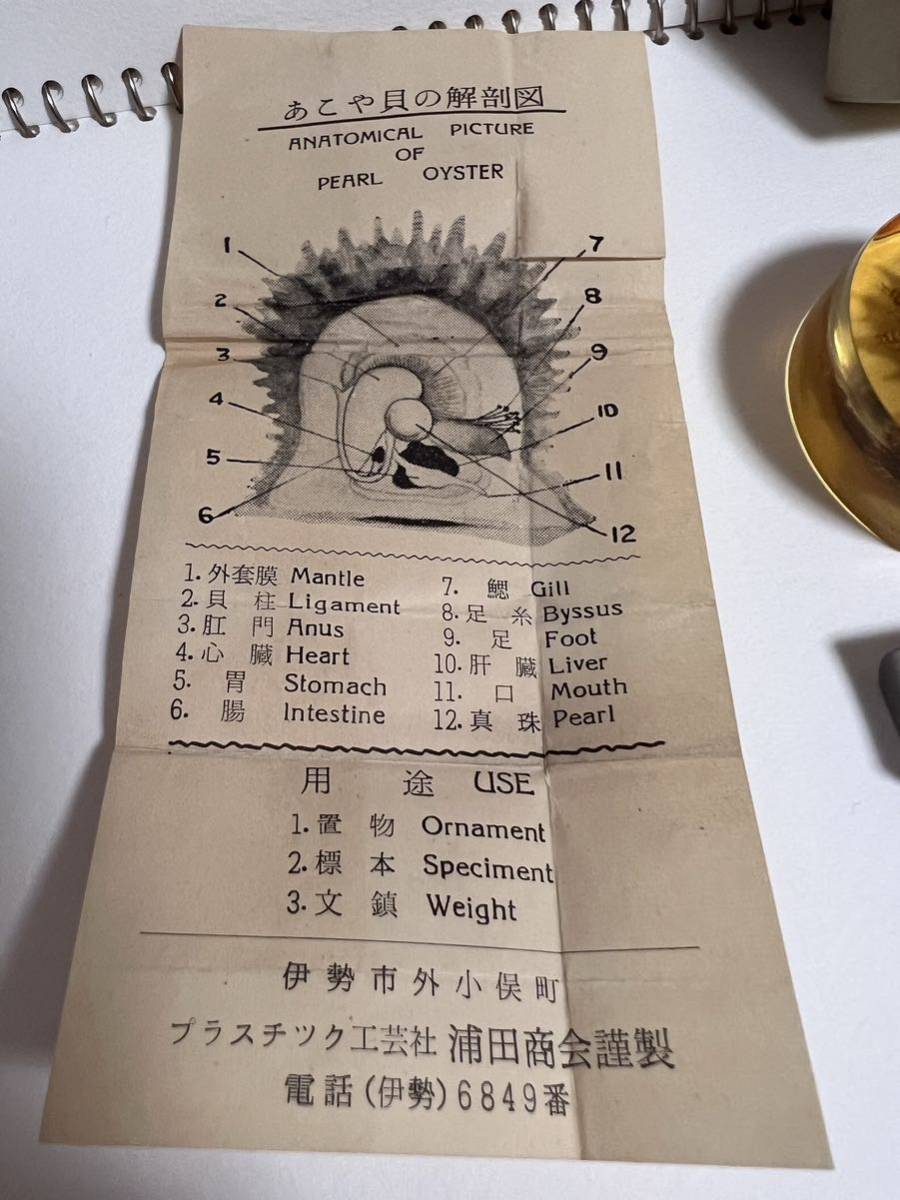 あこや貝の解剖図
ANATOMICAL PICTURE
OF
PEARL OYSTER
1
2
3
4
5
6
7
8
9
10
11
12
1. 外套膜 Mantle
2. 貝柱 Ligament
3. 肛門 Anus
4. 心臓 Heart
5. 胃 Stomach
6. 腸 Intestine
7. 鰓 Gill
8. 足糸 Byssus
9. 足 Foot
10. 肝臓 Liver
11. 口 Mouth
12. 真珠 Pearl
用途 USE
1. 置物 Ornament
2. 標本 Speciment
3. 文鎮 Weight
伊勢市外小俣町
プラスチツク工芸社 浦田商会謹製
電話(伊勢)6849番